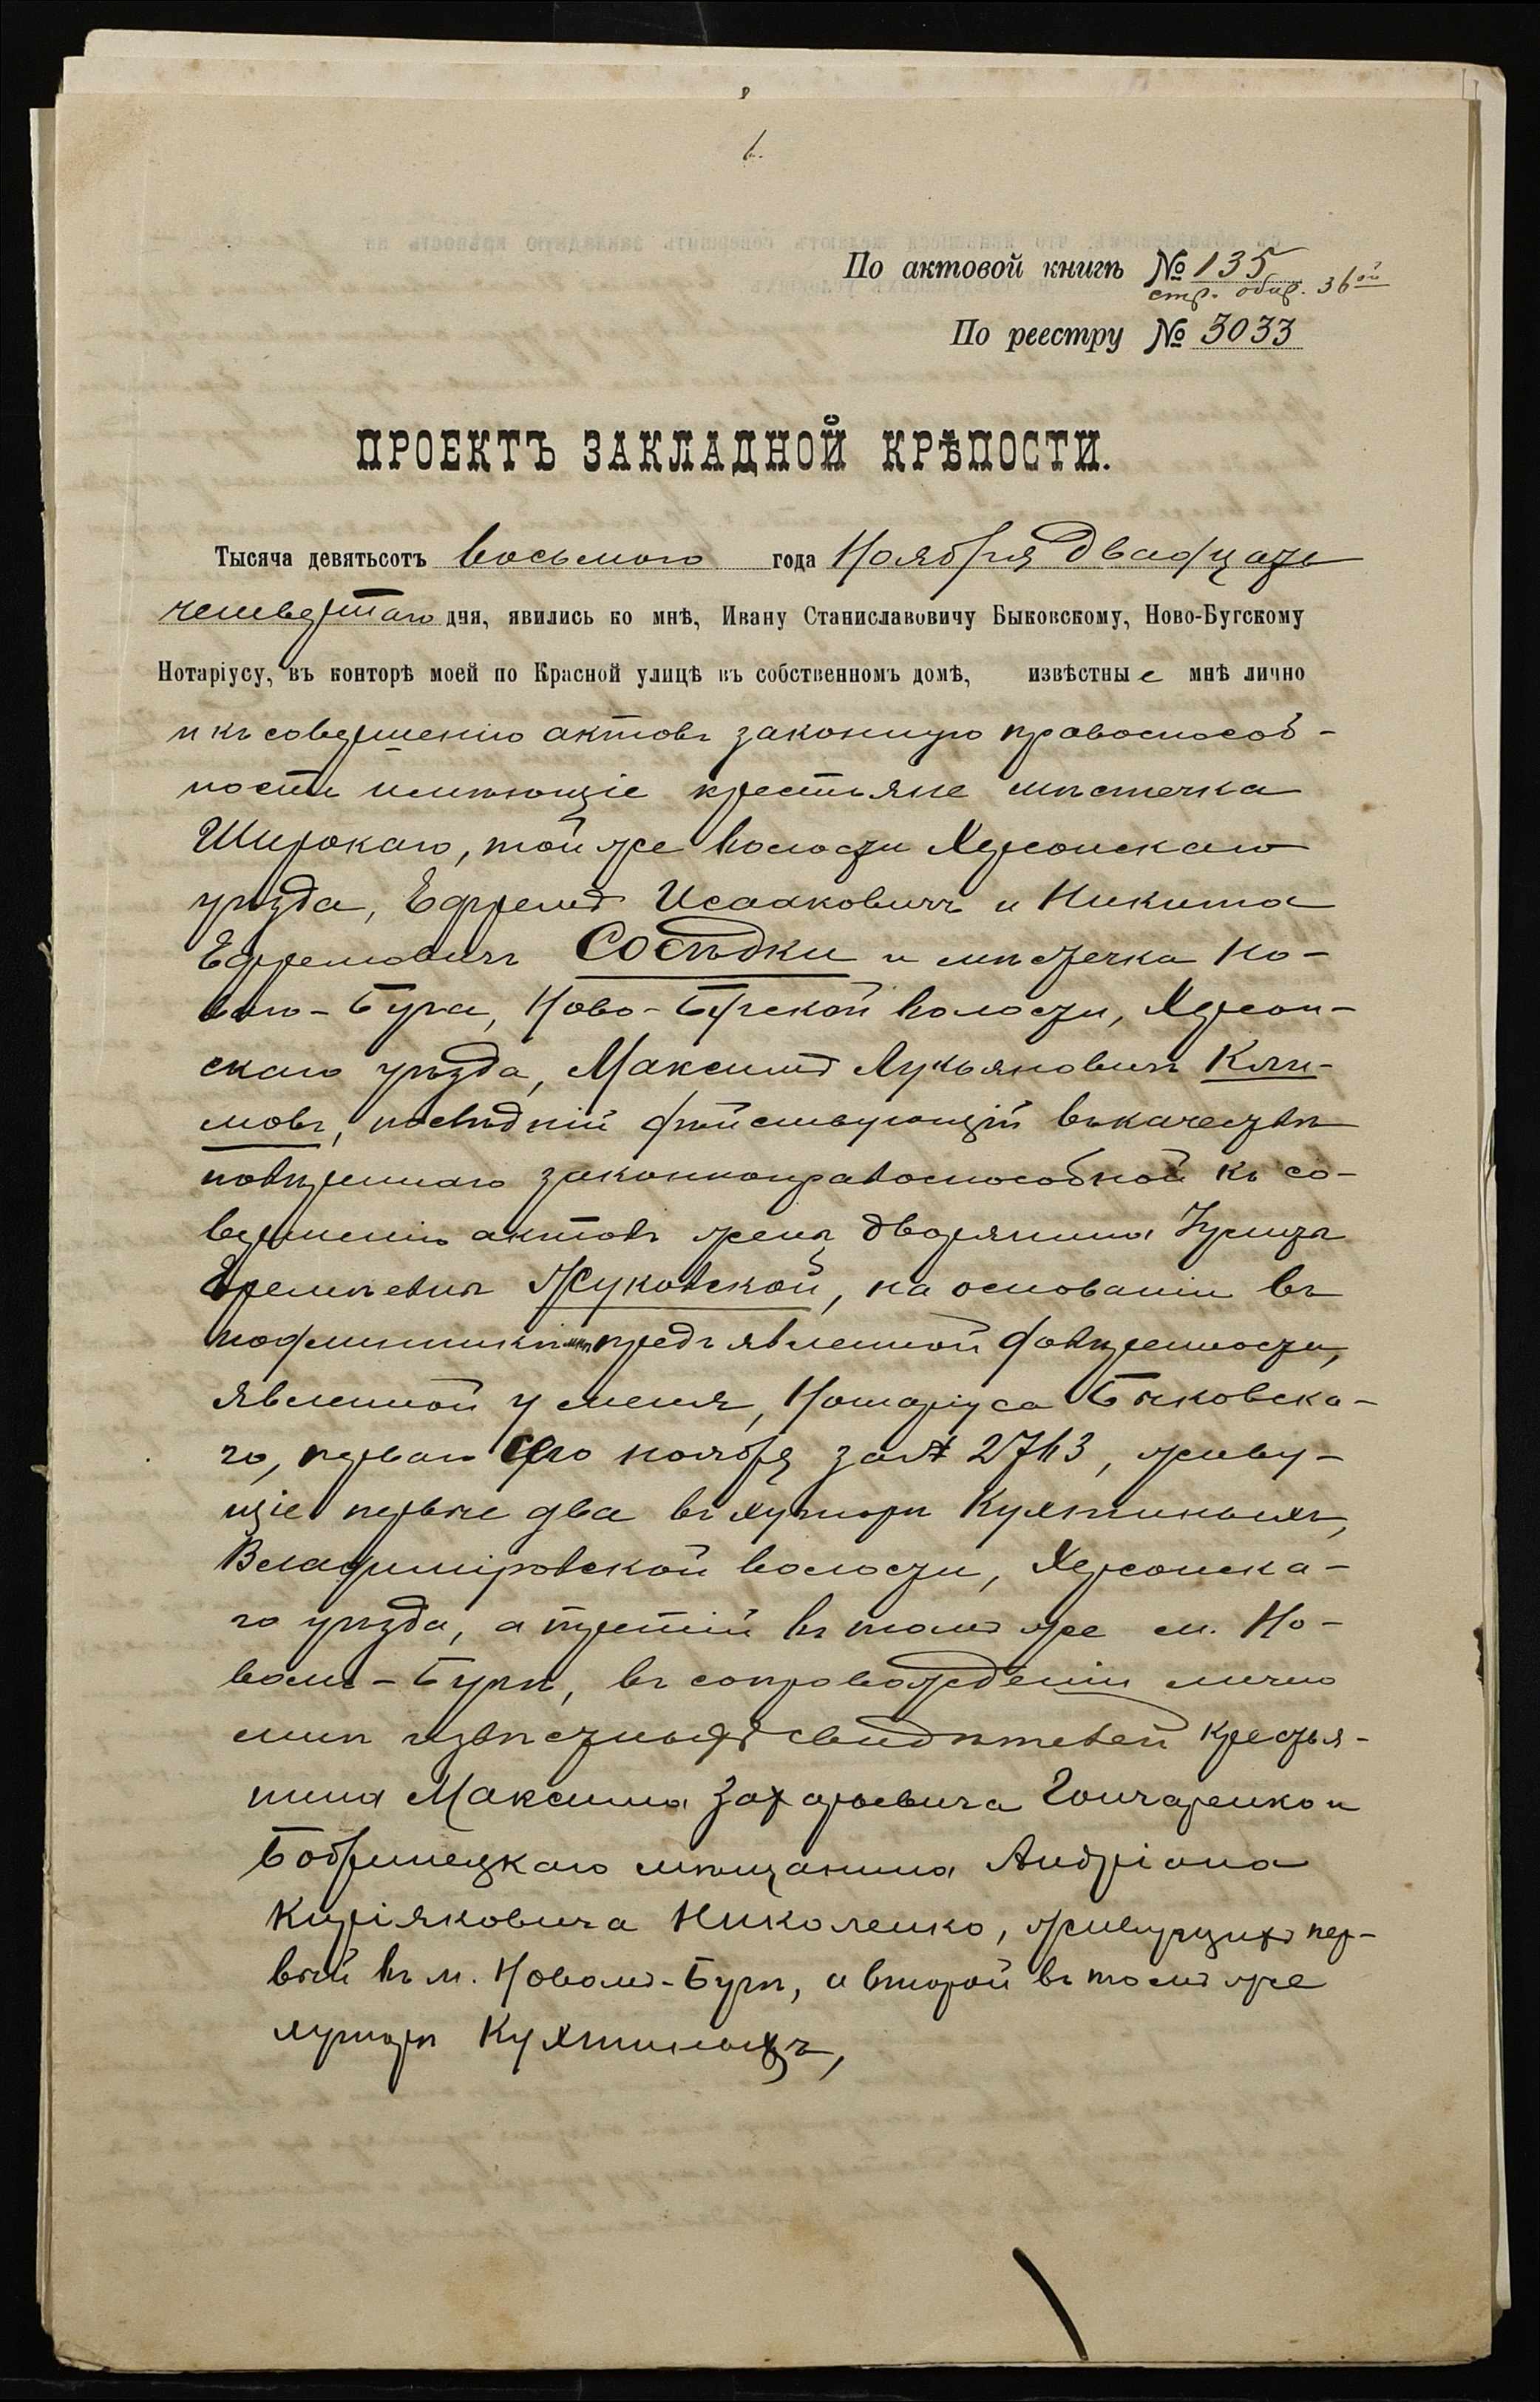 По актовой книгѣ № 135
стр. обор. 36ой
По реестру № 3033
ПРОЕКТЪ ЗАКЛАДНОЙ КРѢПОСТИ.
Тысяча девятьсотъ восьмого года Ноября двадцать
четвертаго дня, явились ко мнѣ, Ивану Станиславовичу Быковскому, Ново-Бугскому
Нотаріусу, въ конторѣ моей по Красной улицѣ въ собственномъ домѣ, извѣстные мнѣ лично
и къ совершенію актовъ законную правоспособ-
ность имѣющіе крестьяне мѣстечка
Широкаго, той же волости Херсонскаго
уѣзда, Ефремъ Исааковичъ и Никита
Ефремовичъ Сосѣдки и мѣстечка Но-
ваго-Буга, Ново-Бугской волости, Херсон-
скаго уѣзда, Максимъ Лукьяновичъ Кли-
мовъ, послѣдній дѣйствующій въ качествѣ
повѣреннаго законноправоспособной къ со-
вершенію актовъ жены дворянина
Еремѣевны Жуковской, на основаніи въ
подлинникѣ предъявленной довѣренности,
явленной у меня, Нотаріуса Быковска-
го, перваго сего ноября за № 2743, живу-
щіе первые два въ хуторѣ Кухтиныхъ,
Владиміровской волости, Херсонска-
го уѣзда, а третій въ томъ же м. Но-
вомъ-Бугѣ, въ сопровожденіи лично
мнѣ извѣстныхъ свидѣтелей крестья-
нина Максима Захарьевича Гончаренко и
Бобринецкаго мѣщанина Андріана
Киріяковича Николенко, живущихъ пер-
вый въ м. Новомъ-Бугѣ, а второй въ томъ же
хуторѣ Кухтиныхъ,